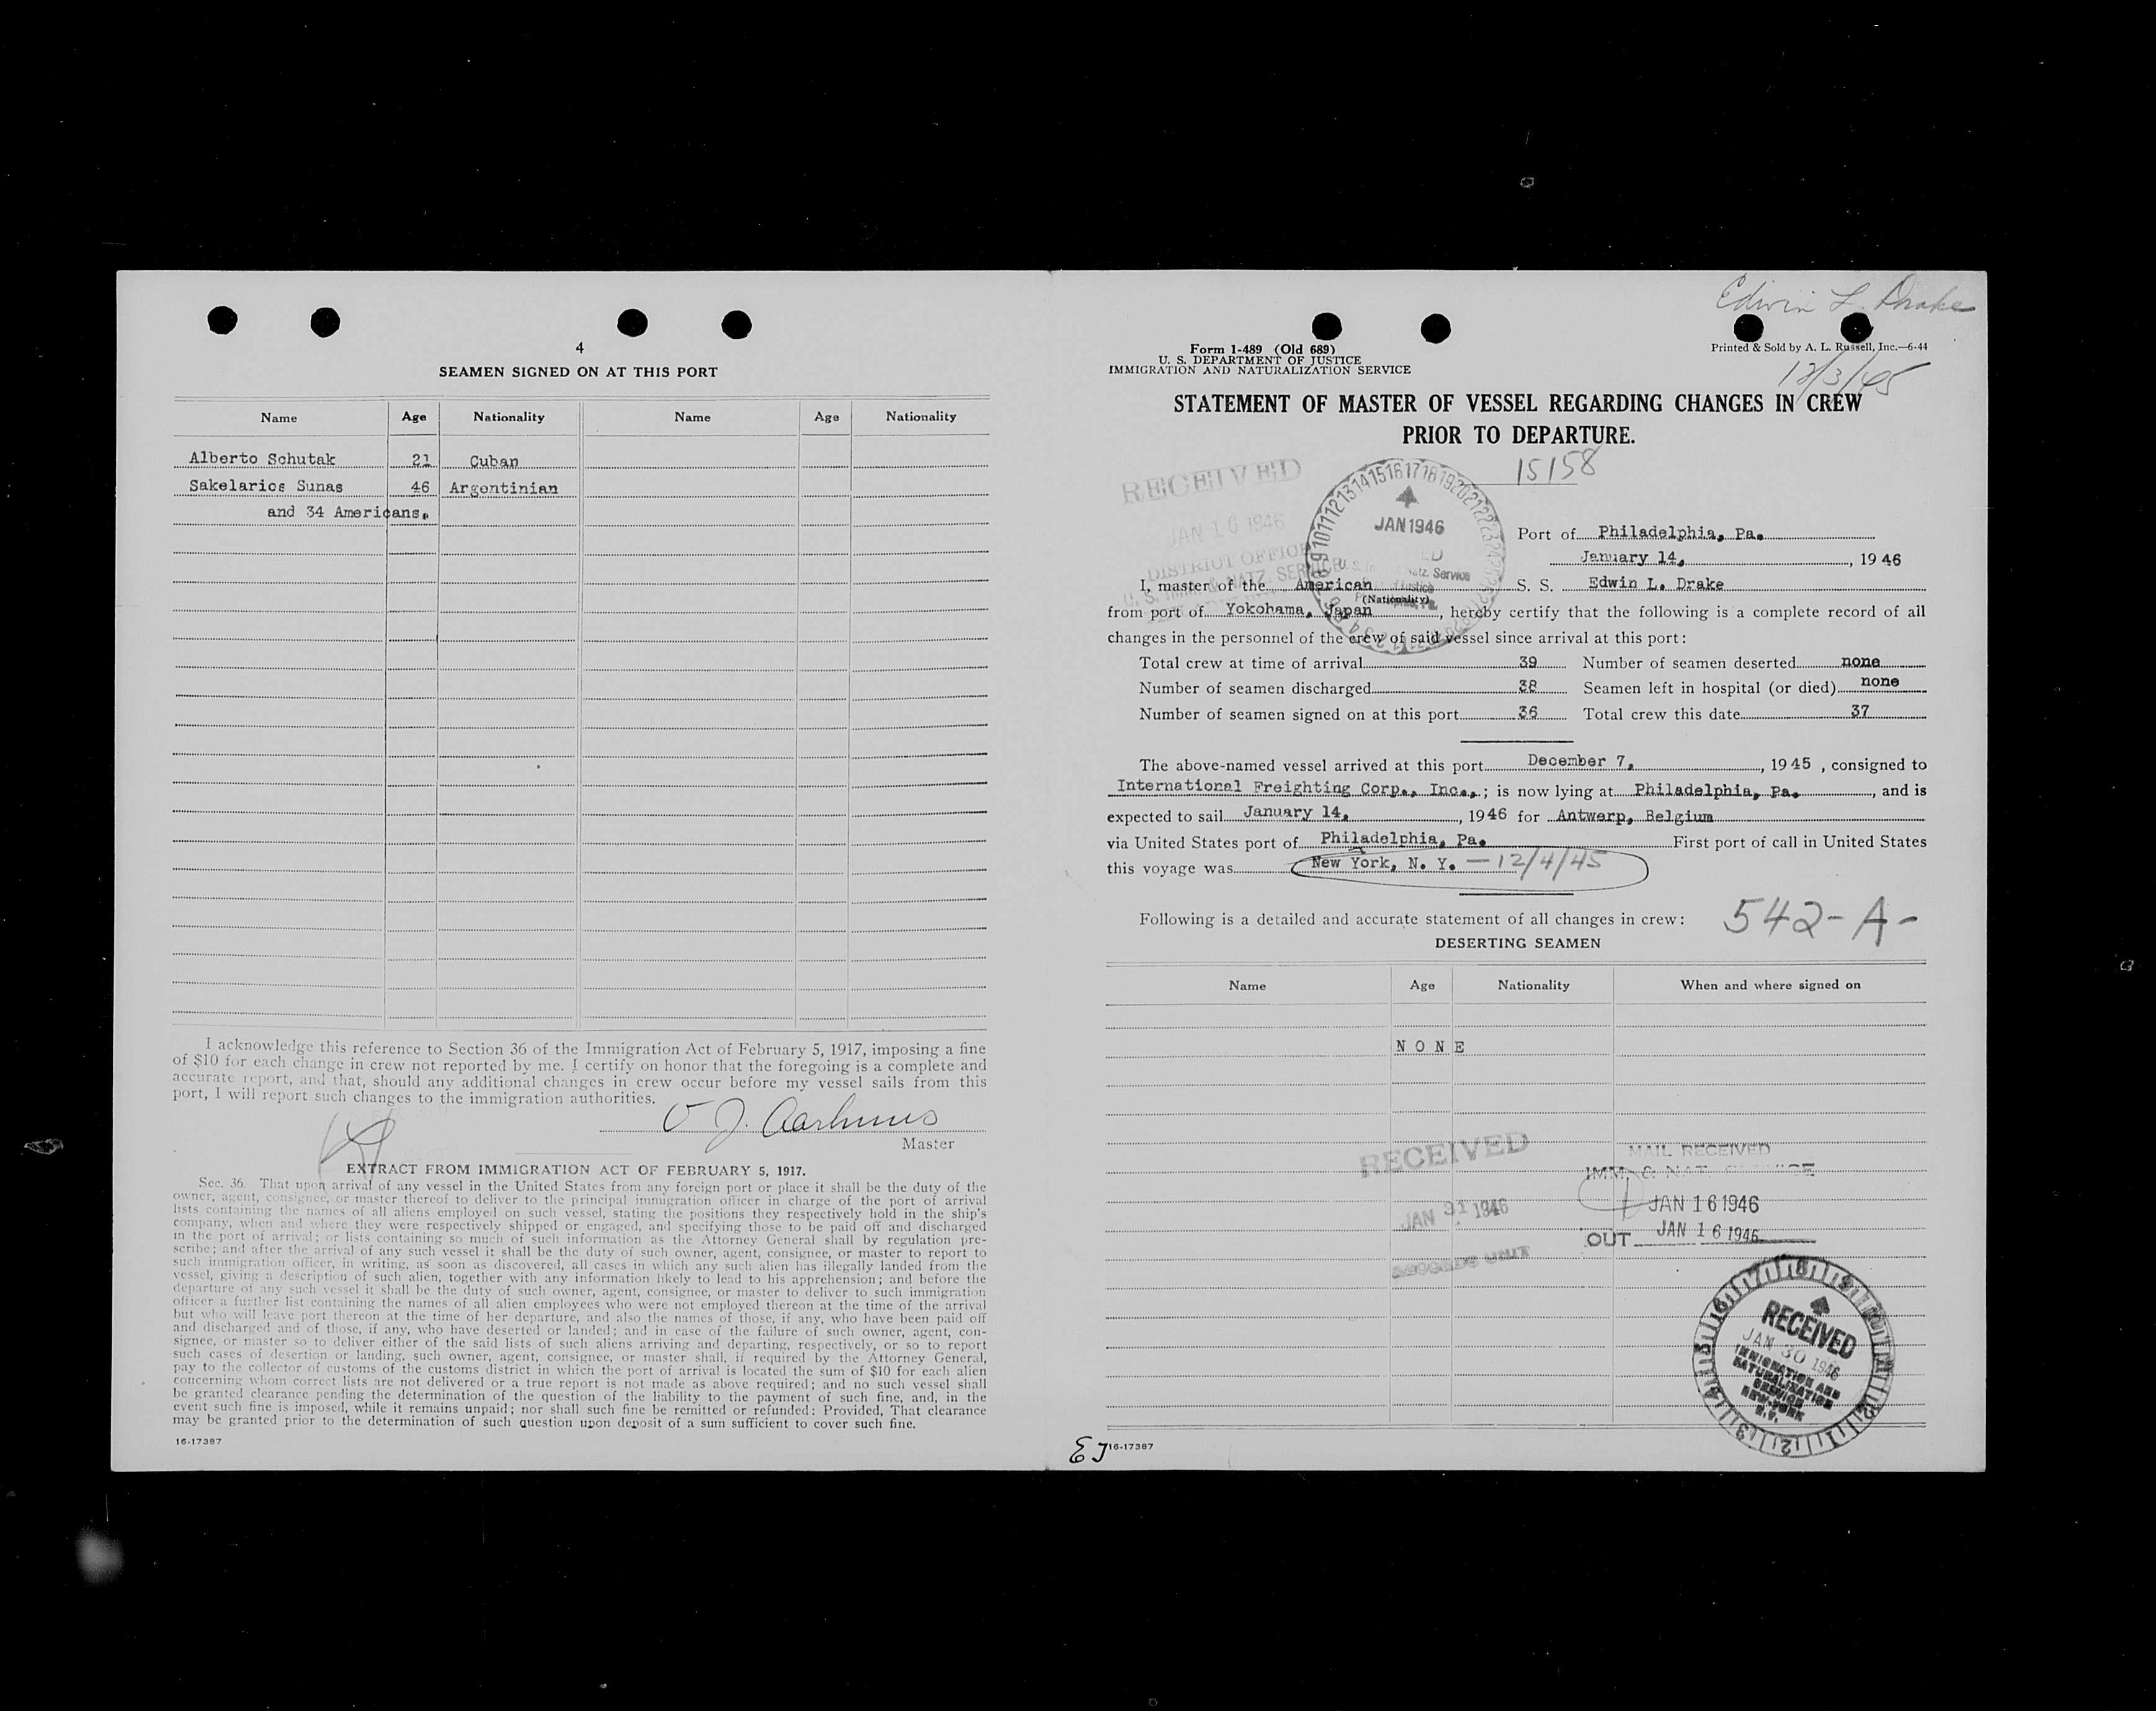 4
SEAMEN SIGNED ON AT THIS PORT
Name Age Nationality Name Age Nationality
Alberto Schutak 21 Cuban
Sakelarios Sunas 46 Argentinian
and 34 Americans.
I acknowledge this reference to Section 36 of the Immigration Act of February 5, 1917, imposing a fine
of $10 for each change in crew not reported by me. I certify on honor that the foregoing is a complete and
accurate report, and that, should any additional changes in crew occur before my vessel sails from this
port, I will report such changes to the immigration authorities.
Master
EXTRACT FROM IMMIGRATION ACT OF FEBRUARY 5, 1917.
Sec. 36. That upon arrival of any vessel in the United States from any foreign port or place it shall be the duty of the
owner, agent, consignee, or master thereof to deliver to the principal immigration officer in charge of the port of arrival
lists containing the names of all aliens employed on such vessel, stating the positions they respectively hold in the ship's
company, when and where they were respectively shipped or engaged, and specifying those to be paid off and discharged
in the port of arrival; or lists containing so much of such information as the Attorney General shall by regulation pre-
scribe; and after the arrival of any such vessel it shall be the duty of such owner, agent, consignee, or master to report to
such immigration officer, in writing, as soon as discovered, all cases in which any such alien has illegally landed from the
vessel, giving a description of such alien, together with any information likely to lead to his apprehension; and before the
departure of any such vessel it shall be the duty of such owner, agent, consignee, or master to deliver to such immigration
officer a further list containing the names of all alien employees who were not employed thereon at the time of the arrival
but who will leave port thereon at the time of her departure, and also the names of those, if any, who have been paid off
and discharged and of those, if any, who have deserted or landed; and in case of the failure of such owner, agent, con-
signee, or master so to deliver either of the said lists of such aliens arriving and departing, respectively, or so to report
such cases of desertion or landing, such owner, agent, consignee, or master shall, if required by the Attorney General,
pay to the collector of customs of the customs district in which the port of arrival is located the sum of $10 for each alien
concerning whom correct lists are not delivered or a true report is not made as above required; and no such vessel shall
be granted clearance pending the determination of the question of the liability to the payment of such fine, and, in the
event such fine is imposed, while it remains unpaid; nor shall such fine be remitted or refunded: Provided, That clearance
may be granted prior to the determination of such question upon deposit of a sum sufficient to cover such fine.
16-17387
Edwin L. Drake
Form 1-489 (Old 689)
U. S. DEPARTMENT OF JUSTICE
IMMIGRATION AND NATURALIZATION SERVICE
Printed & Sold by A. L. Russell, Inc.—6-44
12/3/45
STATEMENT OF MASTER OF VESSEL REGARDING CHANGES IN CREW
PRIOR TO DEPARTURE.
15158
RECEIVED
JAN 16 1946
DISTRICT OFFICE
JAN 1946
Port of Philadelphia, Pa.
January 14, , 1946
I, master of the American S. S. Edwin L. Drake
(Nationality)
from port of Yokohama, Japan , hereby certify that the following is a complete record of all
changes in the personnel of the crew of said vessel since arrival at this port:
Total crew at time of arrival 39 Number of seamen deserted none
Number of seamen discharged 38 Seamen left in hospital (or died) none
Number of seamen signed on at this port 36 Total crew this date 37
The above-named vessel arrived at this port December 7, , 1945 , consigned to
International Freighting Corp., Inc., ; is now lying at Philadelphia, Pa. , and is
expected to sail January 14, , 1946 for Antwerp, Belgium
via United States port of Philadelphia, Pa. First port of call in United States
this voyage was New York, N. Y. — 12/4/45
Following is a detailed and accurate statement of all changes in crew:
542-A-
DESERTING SEAMEN
Name Age Nationality When and where signed on
NONE
RECEIVED
JAN 31 1946
MAIL RECEIVED
JAN 16 1946
OUT JAN 16 1946
RECEIVED
JAN 30 1946
IMMIGRATION AND
NATURALIZATION
SERVICE
NEW YORK
N.Y.
EJ
16-17387